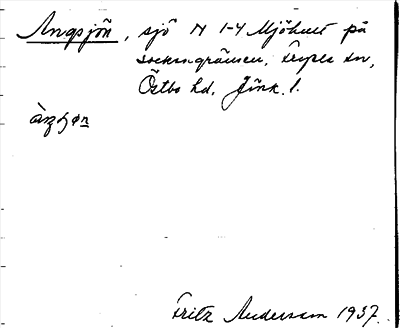 Angsjön, sjö N 1-4 Mjöhult på
sockengränsen,
Östbo hd. Jönk. l.
Fritz Andersson 1937.